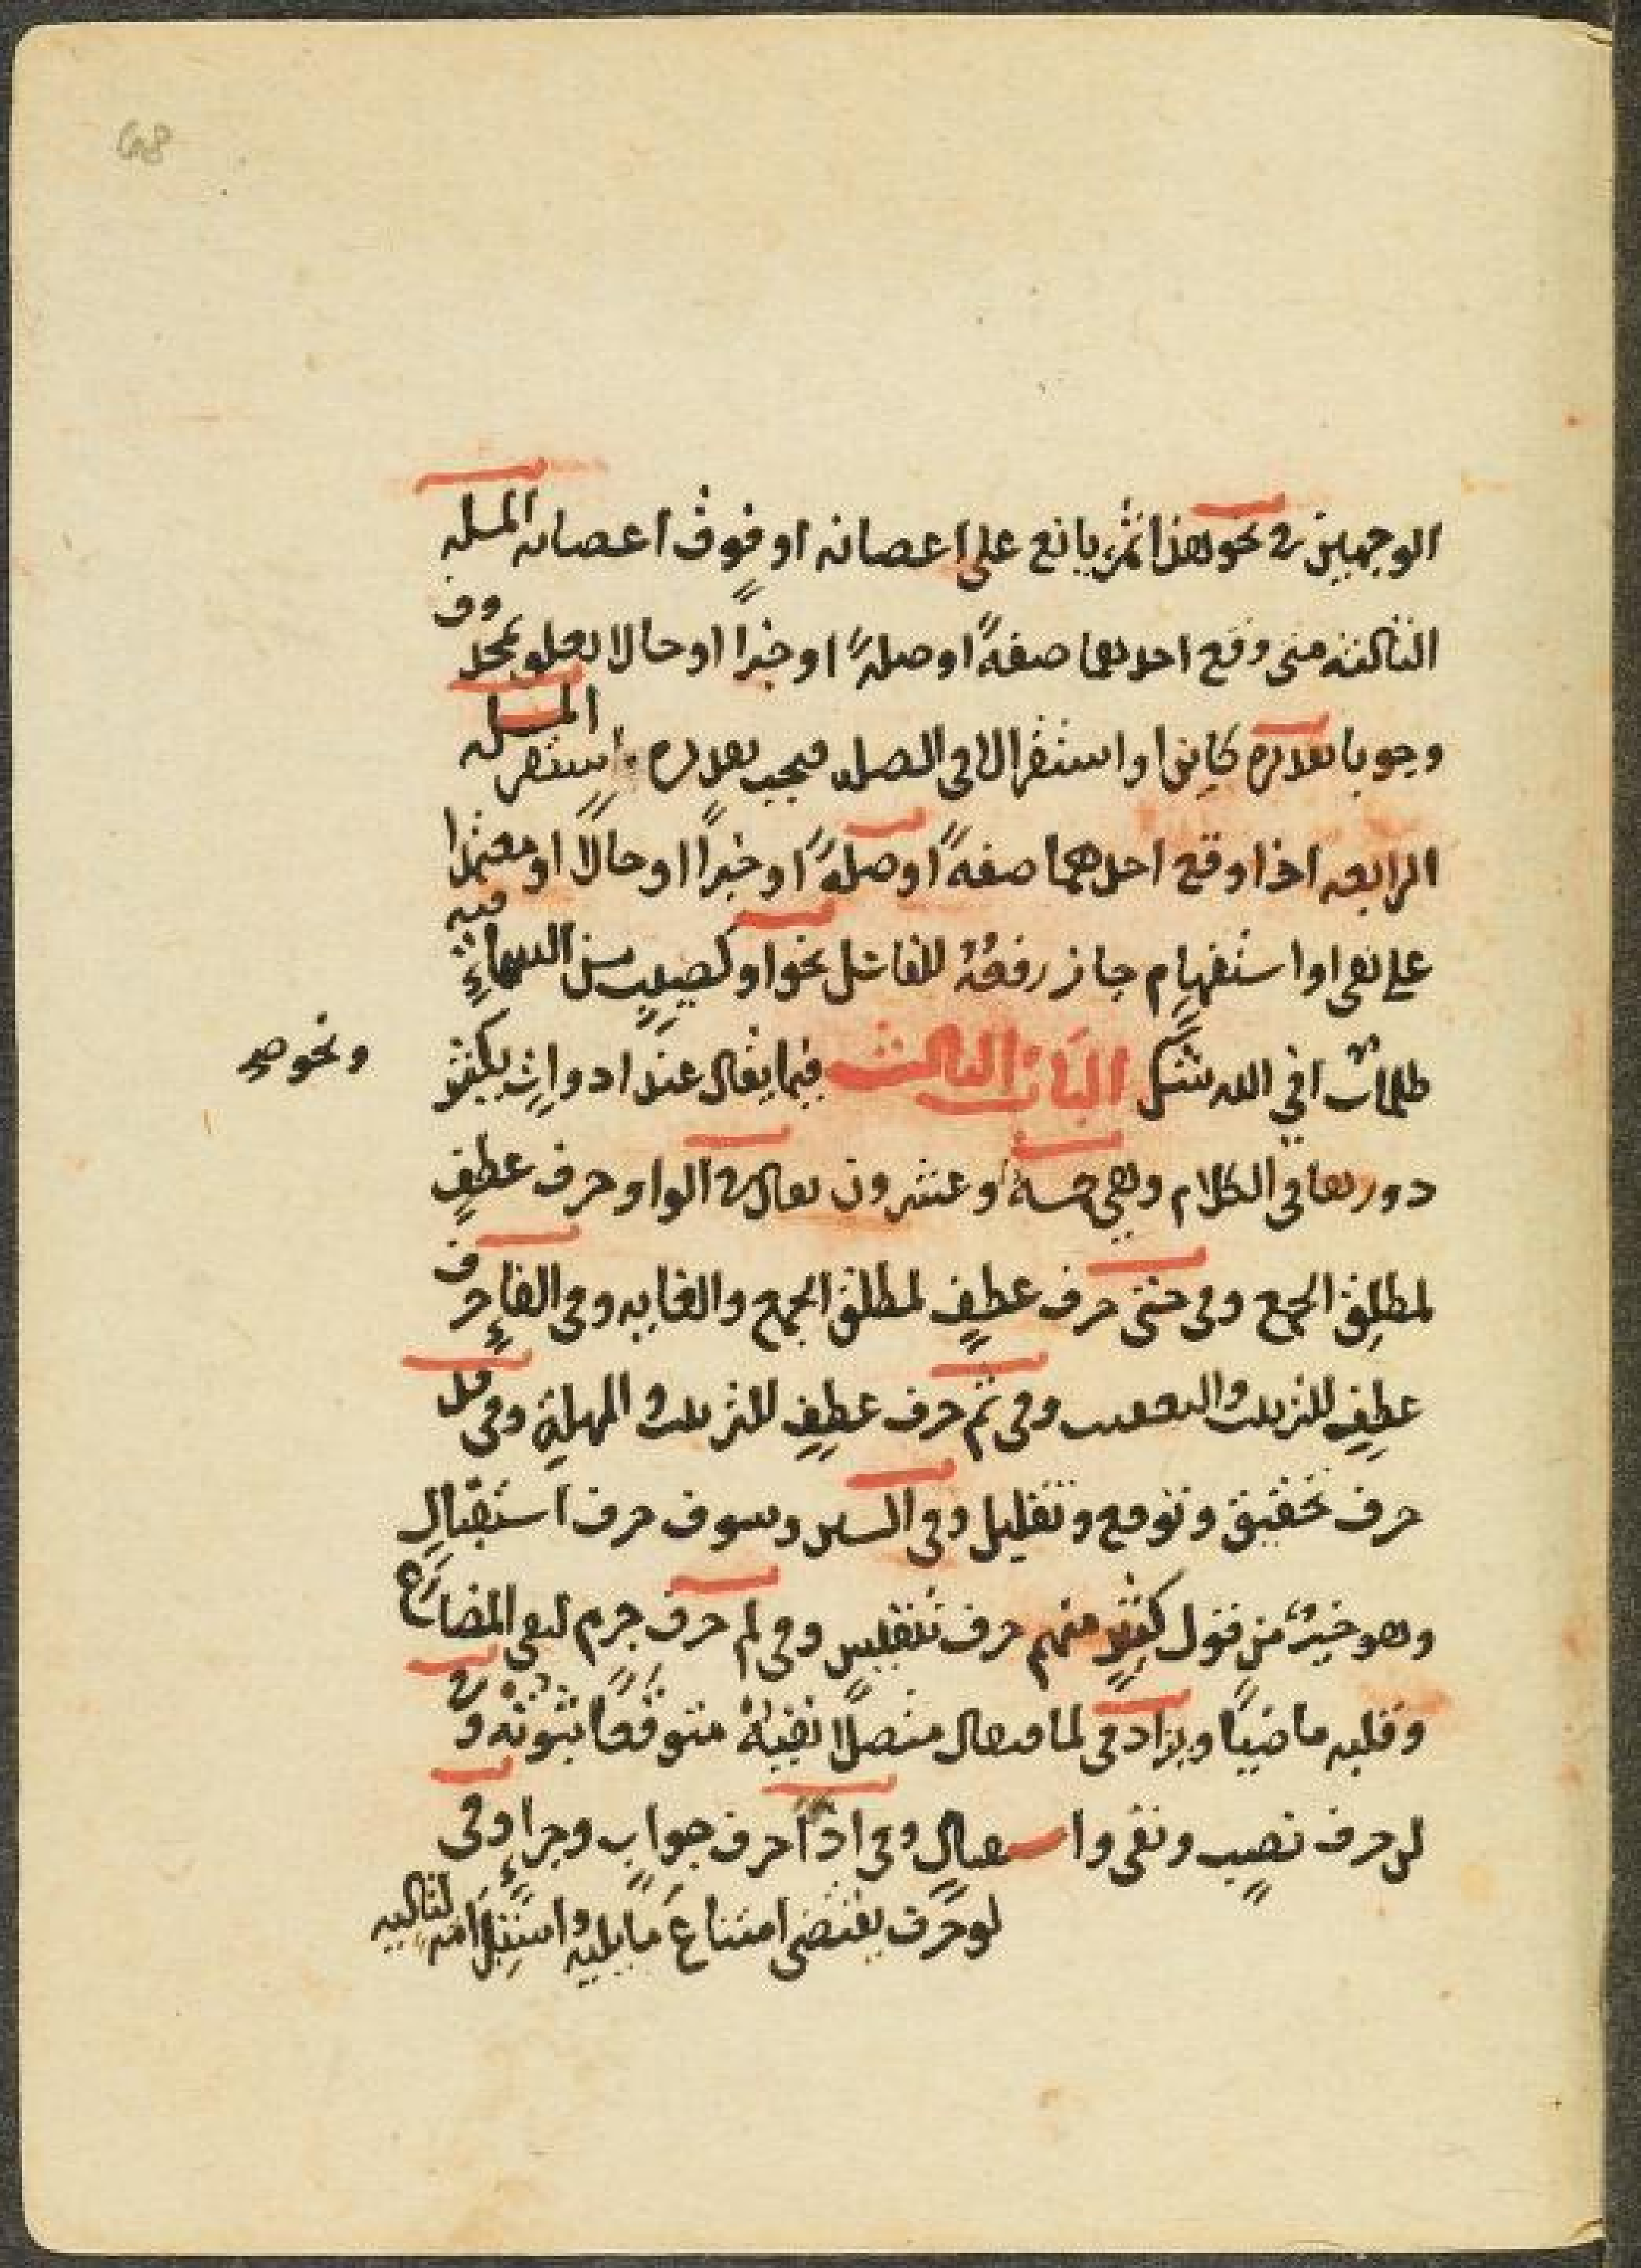 68
الوجهين في نحو هذا ثمرٌ يانع على اعصانه او فوق اعصانه المسله
الثالثه متى وقع احدهما صفةً او صلةً او خبرا او حالا تعلق بمحذوف
وجوبا تقديره كاين او استقر الا في الصله فيجب تقديره استقر المسله
الرابعه اذا وقع احدهما صفةً او صلةً او خبراً او حالاً او معتمدا
على نفي او استفهام جاز رفعهُ للفاعل نحو او كصيبٍ من السماءِ فيه
ظلماتٌ افي الله شكٌ الباب الثالث فيما يقال عند ادواتٍ يكثر
ونحوه
دورها في الكلام وهي خمسةٌ وعشرون يقال في الواو حرف عطفٍ
لمطلق الجمع وفي حتى حرف عطفٍ لمطلق الجمع والغايه وفي الفاءِ حرف
عطفٍ للترتيب والتعقيب وفي ثم حرف عطفٍ للترتيب والمهلةِ وفي قد
حرف تحقيق وتوقع وتقليل وفي السين وسوف حرف استقبالٍ
وهو خيرٌ من قول كثيرٍ منهم حرف تنفيسٍ وفي لم حرف جزم لنفي المضارع
وقلبه ماضيًا ويزاد في لما فيقال متصلًا نفيهُ متوقعًا ثبوتُه وفي
لن حرف نصبٍ ونفي واستقبالٍ وفي اذًا حرف جوابٍ وجزاءٍ وفي
لو حرف يقتضي امتناع ما يليه واستلزامه لتاليه